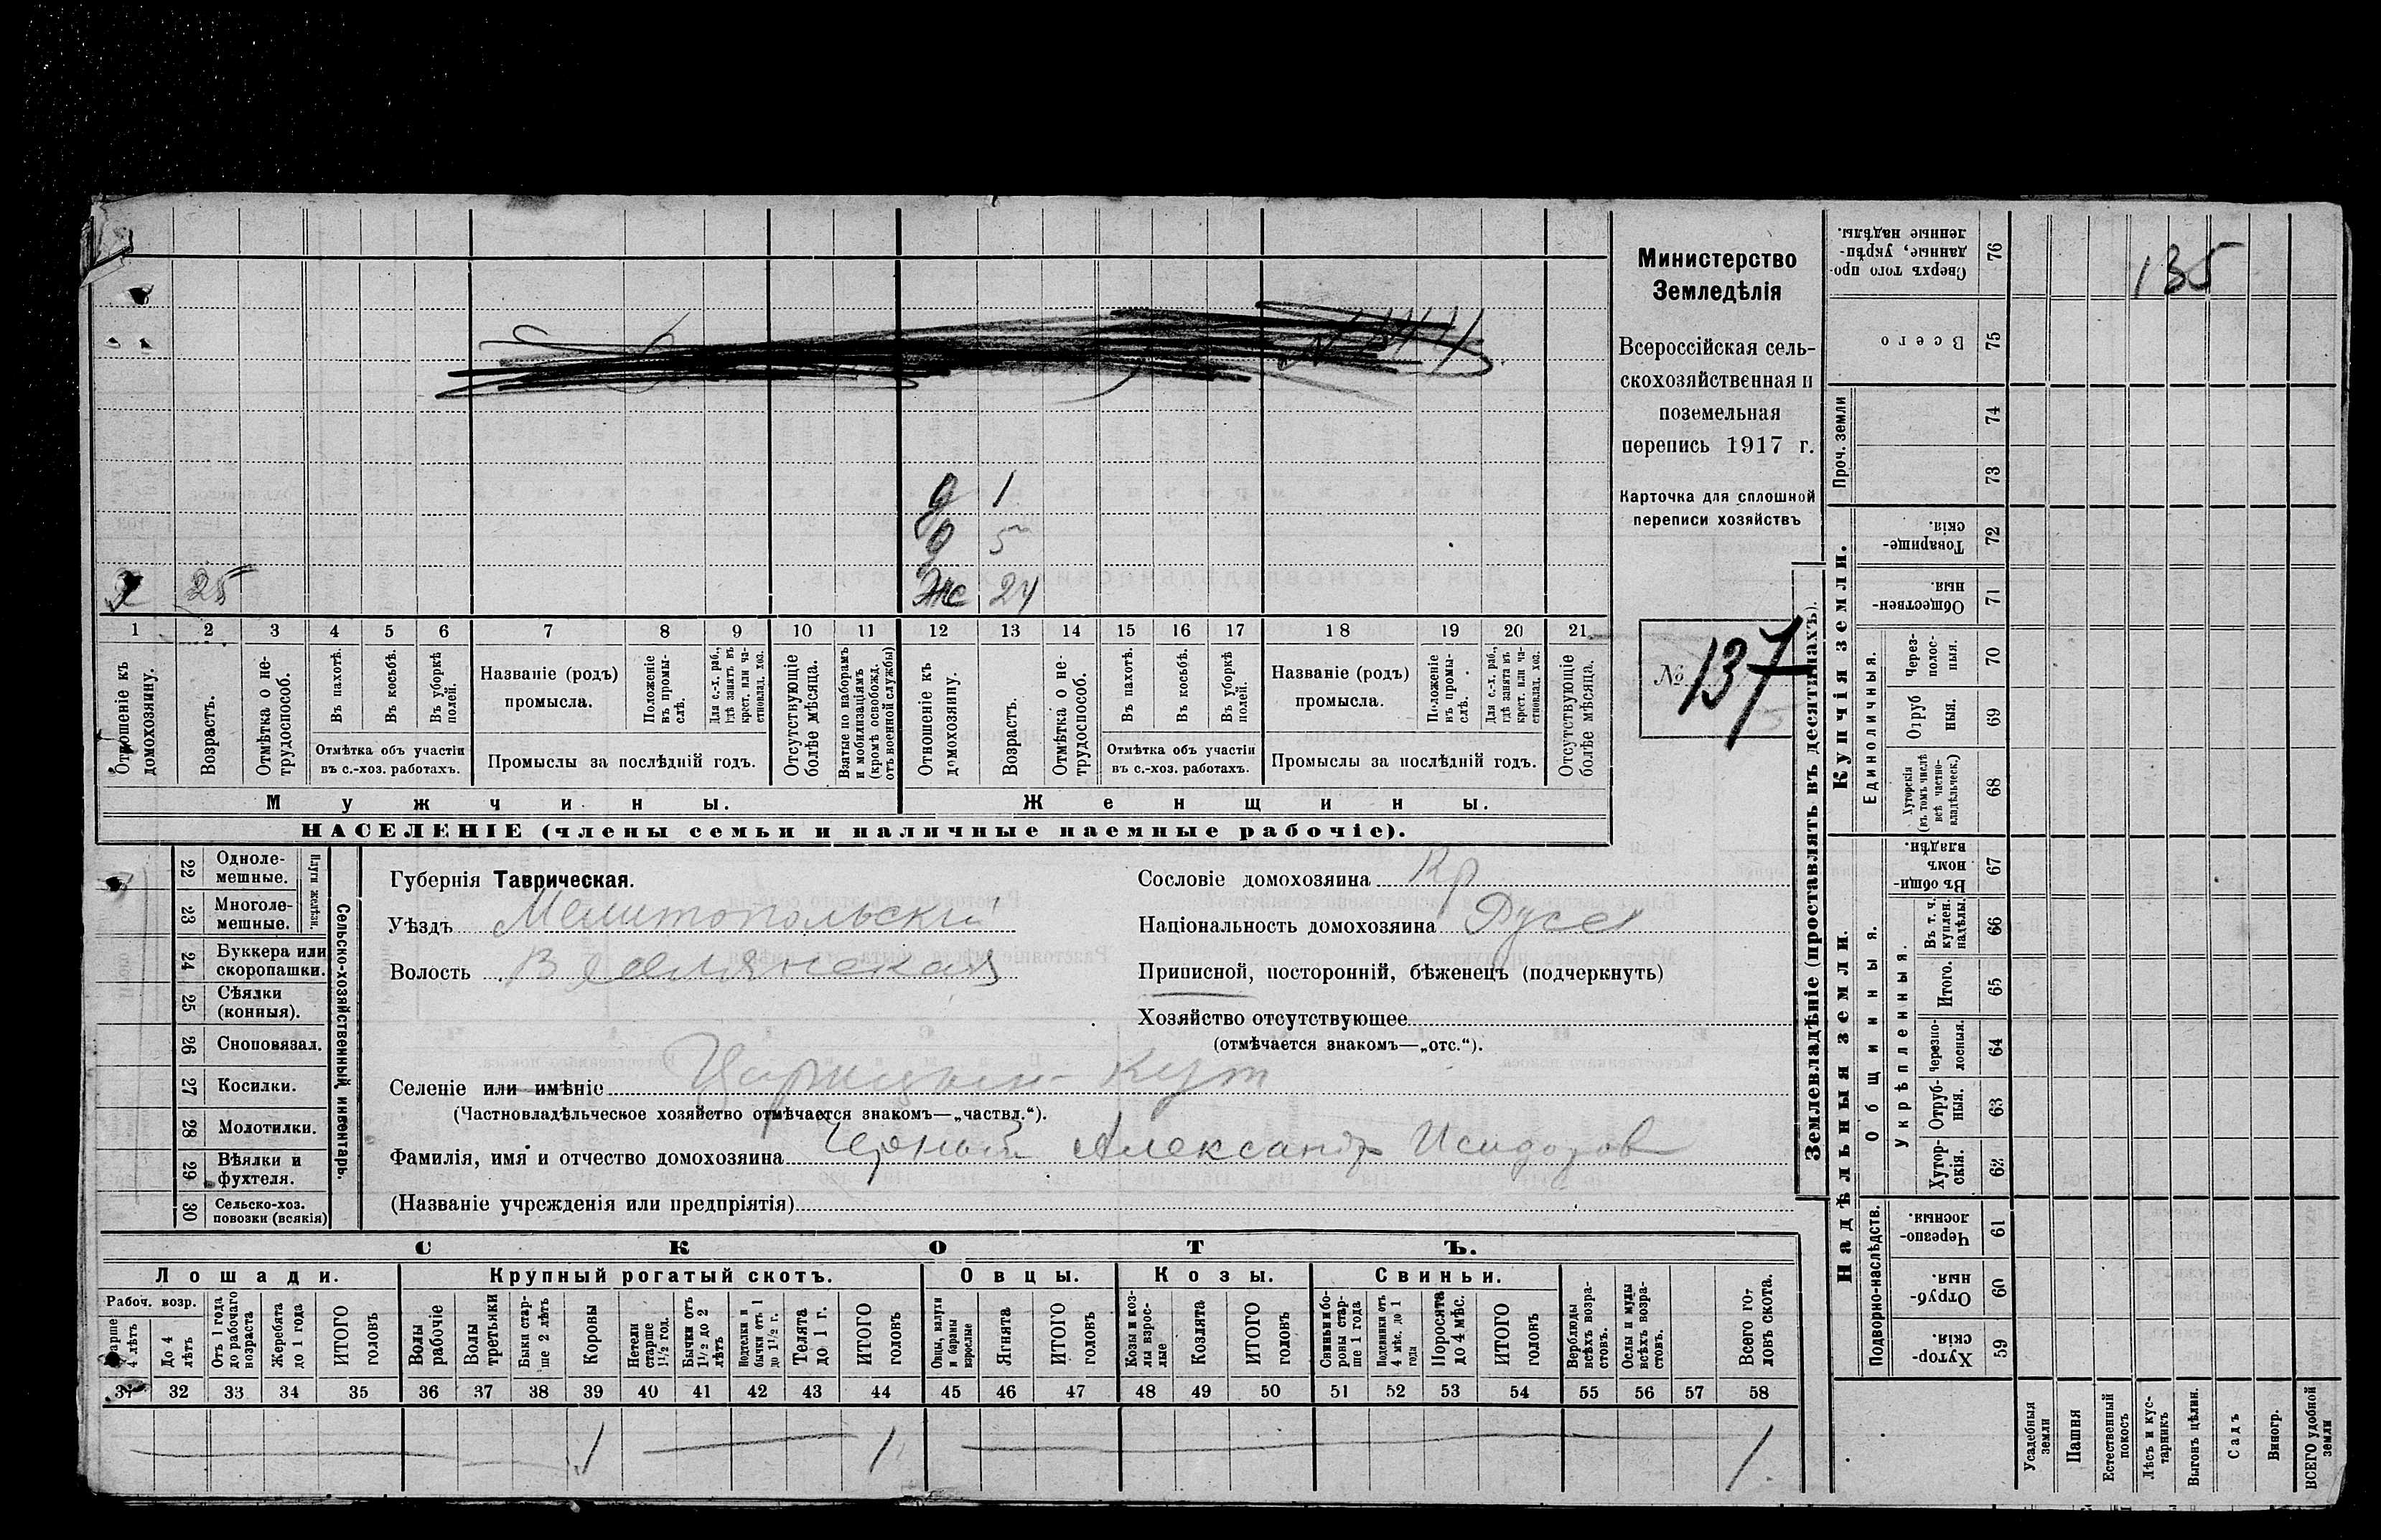 135
д 1
д 5
х 25 Же 24
1 2 3 4 5 6 7 8 9 10 11 12 13 14 15 16 17 18 19 20 21
Отношеніе къ домохозяину.
Возрастъ.
Отмѣтка о не-
трудоспособ.
Въ пахотѣ.
Въ косьбѣ.
Въ уборкѣ полей.
Отмѣтка объ участіи
въ с.-хоз. работахъ.
Названіе (родъ)
промысла.
Положеніе въ промы-
слѣ.
Для с.-х. раб., гдѣ занятъ въ крест. или ча-
стновлад. хоз.
Промыслы за послѣдній годъ.
Отсутствующіе болѣе мѣсяца.
Взятые по наборамъ и мобилизаціямъ (кромѣ освобожд. отъ военной службы)
Отношеніе къ домохозяину.
Возрастъ.
Отмѣтка о не-
трудоспособ.
Въ пахотѣ.
Въ косьбѣ.
Въ уборкѣ полей.
Отмѣтка объ участіи
въ с.-хоз. работахъ.
Названіе (родъ)
промысла.
Положеніе въ промы-
слѣ.
Для с.-х. раб., гдѣ занята въ крест. или ча-
стновлад. хоз.
Промыслы за послѣдній годъ.
Отсутствующіе болѣе мѣсяца.
Мужчины. Женщины.
НАСЕЛЕНІЕ (члены семьи и наличные наемные рабочіе).
Министерство
Земледѣлія
Всероссійская сель-
скохозяйственная и
поземельная
перепись 1917 г.
Карточка для сплошной
переписи хозяйствъ
№ 137
Сельско-хозяйственный инвентарь.
Плуги желѣзн.
22 Одноле-
мешные.
23 Многоле-
мешные.
24 Буккера или
скоропашки.
25 Сѣялки
(конныя).
26 Сноповязал.
27 Косилки.
28 Молотилки.
29 Вѣялки и
фухтеля.
30 Сельско-хоз.
повозки (всякія)
Губернія Таврическая.
Уѣздъ Мелитопольскій
Волость Веселянская
Сословіе домохозяина Кр
Національность домохозяина Русс
Приписной, посторонній, бѣженецъ (подчеркнуть)
Хозяйство отсутствующее
(отмѣчается знакомъ—„отс.“).
Селеніе или имѣніе Царицын Кут
(Частновладѣльческое хозяйство отмѣчается знакомъ—„частвл.“).
Фамилія, имя и отчество домохозяина Черный Александр Исидоров
(Названіе учрежденія или предпріятія)
СКОТЪ.
Лошади. Крупный рогатый скотъ. Овцы. Козы. Свиньи.
Рабоч. возр.
Старше 4 лѣтъ
До 4 лѣтъ
Отъ 1 года до рабочаго возраста
Жеребята до 1 года
ИТОГО головъ
Волы рабочіе
Волы третьяки
Быки стар-
ше 2 лѣтъ
Коровы
Нетели старше 1½ год.
Бычки отъ 1½ до 2 лѣтъ
Подтелки и бычки отъ 1 до 1½ г.
Телята до 1 г.
ИТОГО головъ
Овцы, валухи и бараны взрослые
Ягнята
ИТОГО головъ
Козы и коз-
лы взрос-
лые
Козлята
ИТОГО головъ
Свиньи и бо-
ровы стар-
ше 1 года
Подсвинки отъ 4 мѣс. до 1 года
Поросята до 4 мѣс.
ИТОГО головъ
Верблюды всѣхъ возра-
стовъ.
Ослы и мулы всѣхъ возра-
стовъ.
Всего го-
ловъ скота.
31 32 33 34 35 36 37 38 39 40 41 42 43 44 45 46 47 48 49 50 51 52 53 54 55 56 57 58
1 1 1
Землевладѣніе (проставлять въ десятинахъ).
Купчія земли.
Проч. земли
Единоличныя.
Надѣльныя земли.
Общинныя.
Укрѣпленныя.
Подворно-наслѣдств.
Сверхъ того про-
данные, укрѣп-
ленные надѣлы. 76
Всего 75
74
73
Товарище-
скія. 72
Обществен-
ныя 71
Через-
полос-
ныя. 70
Отруб
ныя. 69
Хуторскія
(въ томъ числѣ
всѣ частно-
владѣльческ.) 68
Въ общин-
номъ
владѣн. 67
Въ т. ч.
куплен.
надѣлы. 66
Итого. 65
Черезпо-
лосныя. 64
Отруб-
ныя. 63
Хутор-
скія. 62
Черезпо-
лосныя. 61
Отруб-
ныя. 60
Хутор-
скія. 59
Усадебныя земли
Пашня
Естественный покосъ
Лѣсъ и кус-
тарникъ
Выгонъ цѣлин.
Садъ
Виногр.
ВСЕГО удобной земли